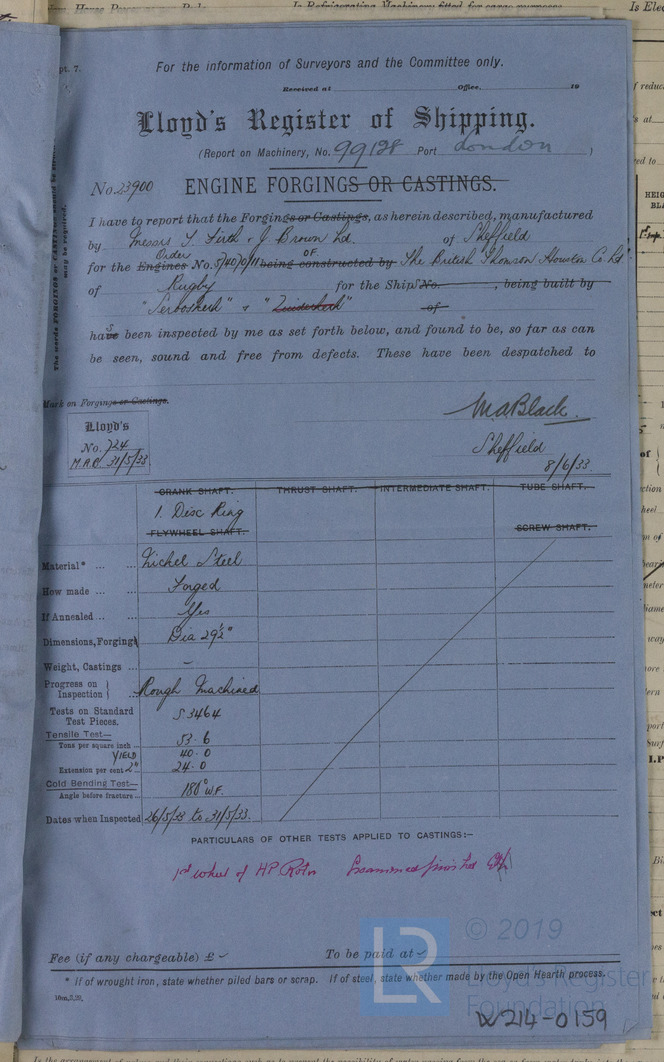 pt. 7.
For the information of Surveyors and the Committee only.
Received at Office. 19
Lloyd's Register of Shipping.
(Report on Machinery, No. 99128 Port London )
No. 23900 ENGINE FORGINGS OR CASTINGS.
I have to report that the Forgings or Castings, as herein described, manufactured
by Messrs T. Firth & J Brown Ld. of Sheffield
Order OF
for the Engines No. 5/40/0/11 being constructed by The British Thomson Houston Co. Ld.
of Rugby for the Ship No. , being built by
of
has been inspected by me as set forth below, and found to be, so far as can
be seen, sound and free from defects. These have been despatched to
Mark on Forgings or Castings.
Lloyd's
No. 724
M.A.B. 31/5/33
M.A. Black.
Sheffield
8/6/33.
CRANK SHAFT. THRUST SHAFT. INTERMEDIATE SHAFT. TUBE SHAFT.
1. Disc Ring
FLYWHEEL SHAFT. SCREW SHAFT.
Material* ... ... Nickel Steel
How made ... ... Forged
If Annealed ... ... Yes
Dimensions, Forgings Dia 29½"
Weight, Castings ... –
Progress on Inspection } ... Rough Machined
Tests on Standard Test Pieces. S3464
Tensile Test—
Tons per square inch ... 53.6
YIELD 40.0
Extension per cent 2" 24.0
Cold Bending Test—
Angle before fracture ... 180° W.F.
Dates when Inspected 26/5/33 to 31/5/33.
PARTICULARS OF OTHER TESTS APPLIED TO CASTINGS:—
1st wheel of HP Rotor Examined finished
Fee (if any chargeable) £ To be paid at
* If of wrought iron, state whether piled bars or scrap. If of steel, state whether made by the Open Hearth process.
© 2019
LR
Lloyd's Register
Foundation
W214-0159